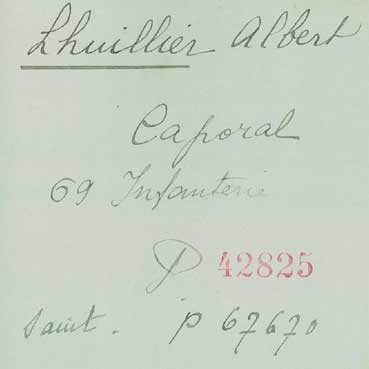 Lhuillier Albert
Caporal
69 Infanterie
P 42825
P 67670